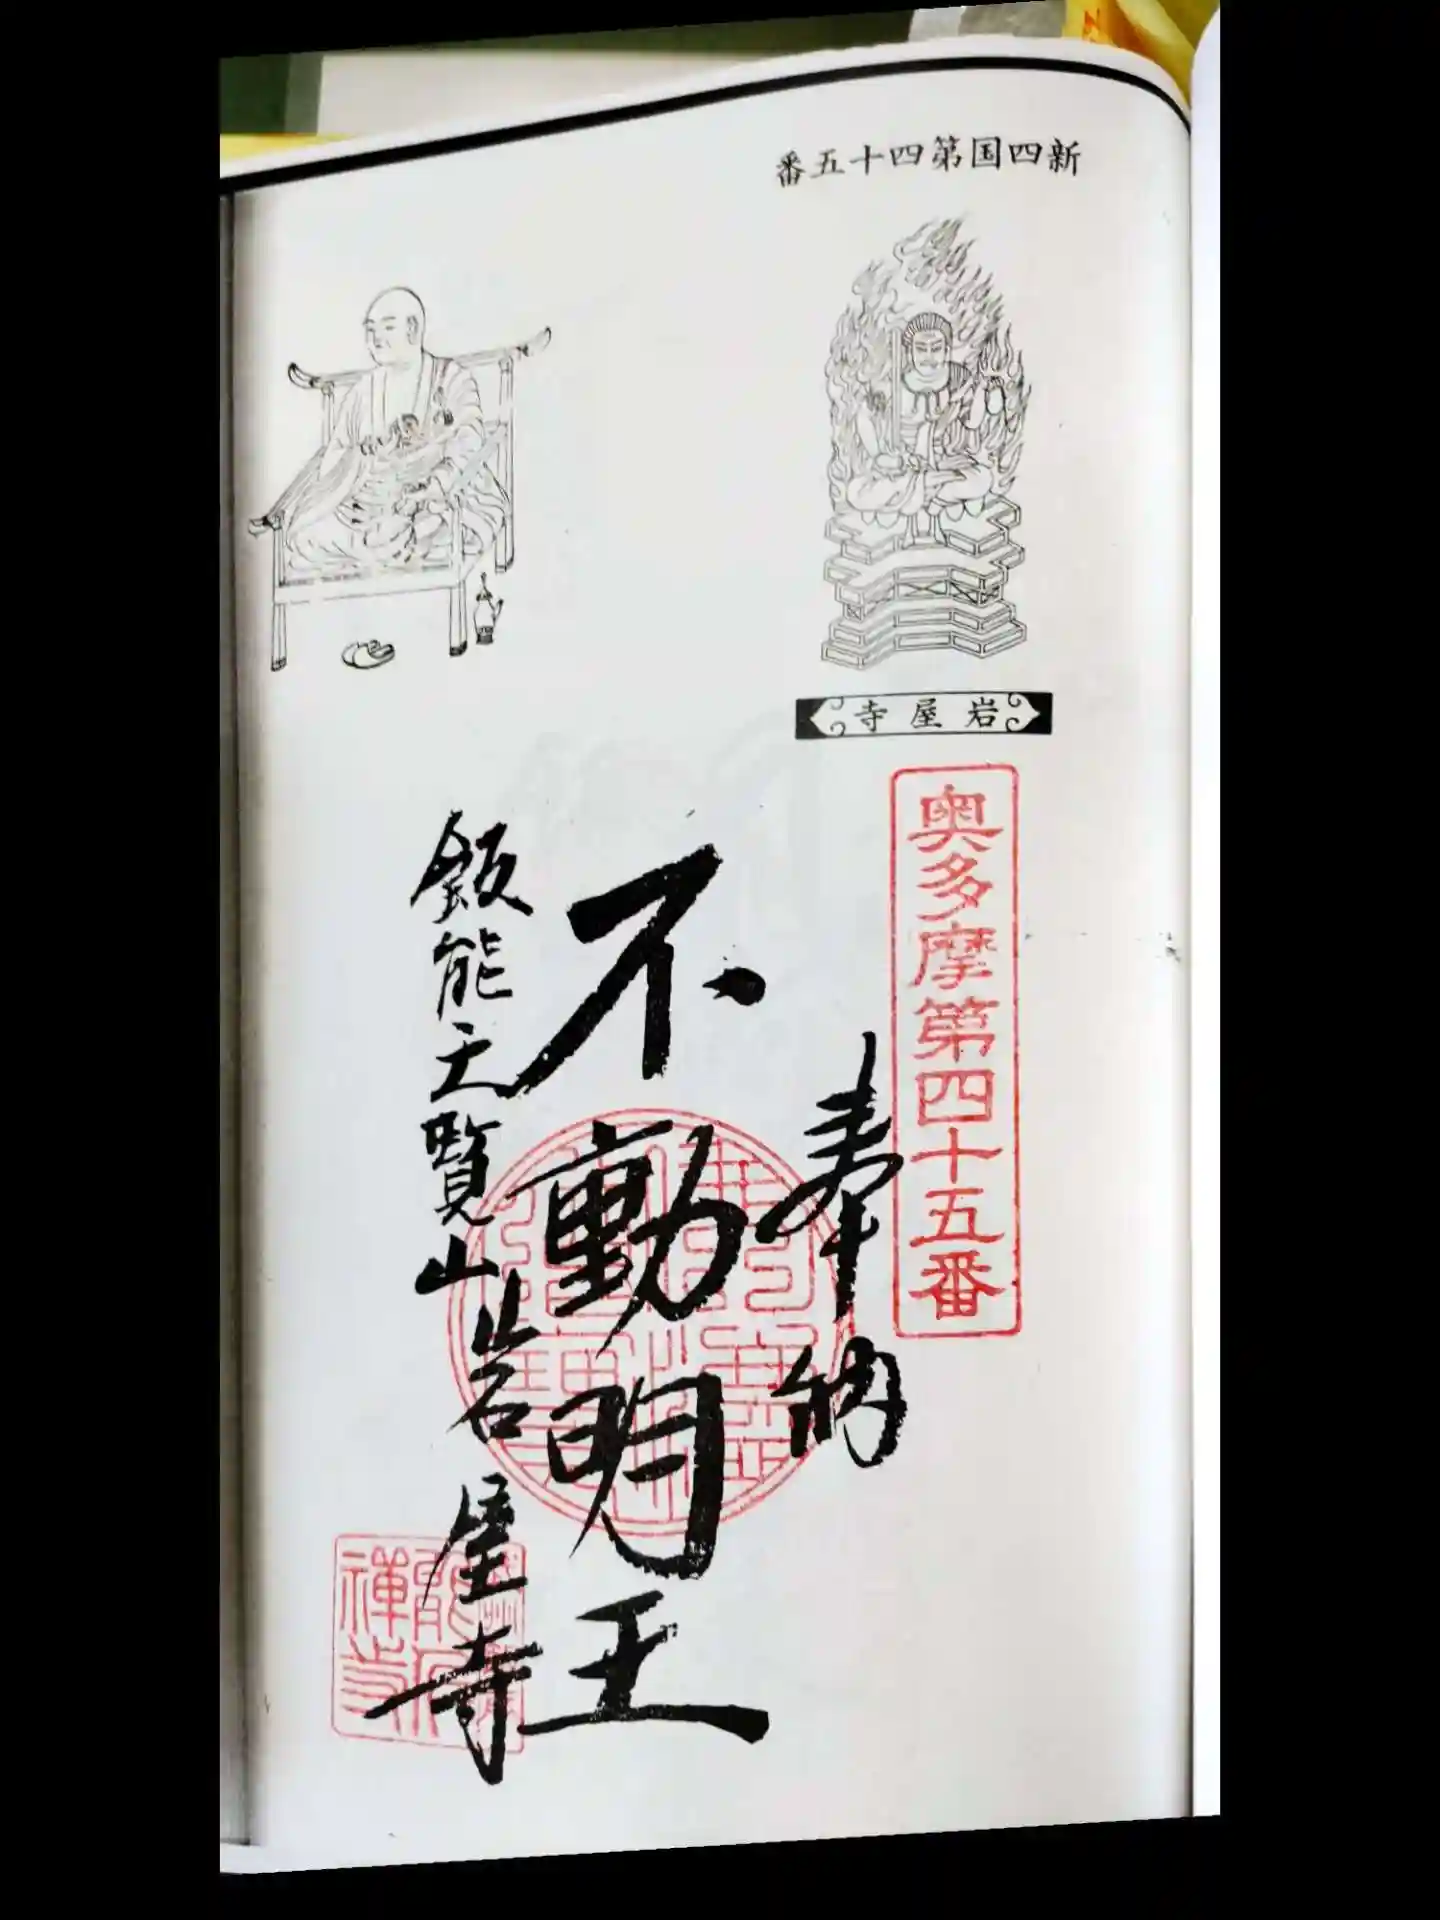 新四国第四十五番
岩屋寺
奥多摩第四十五番
奉納
不動明王
飯能天覧山岩屋寺